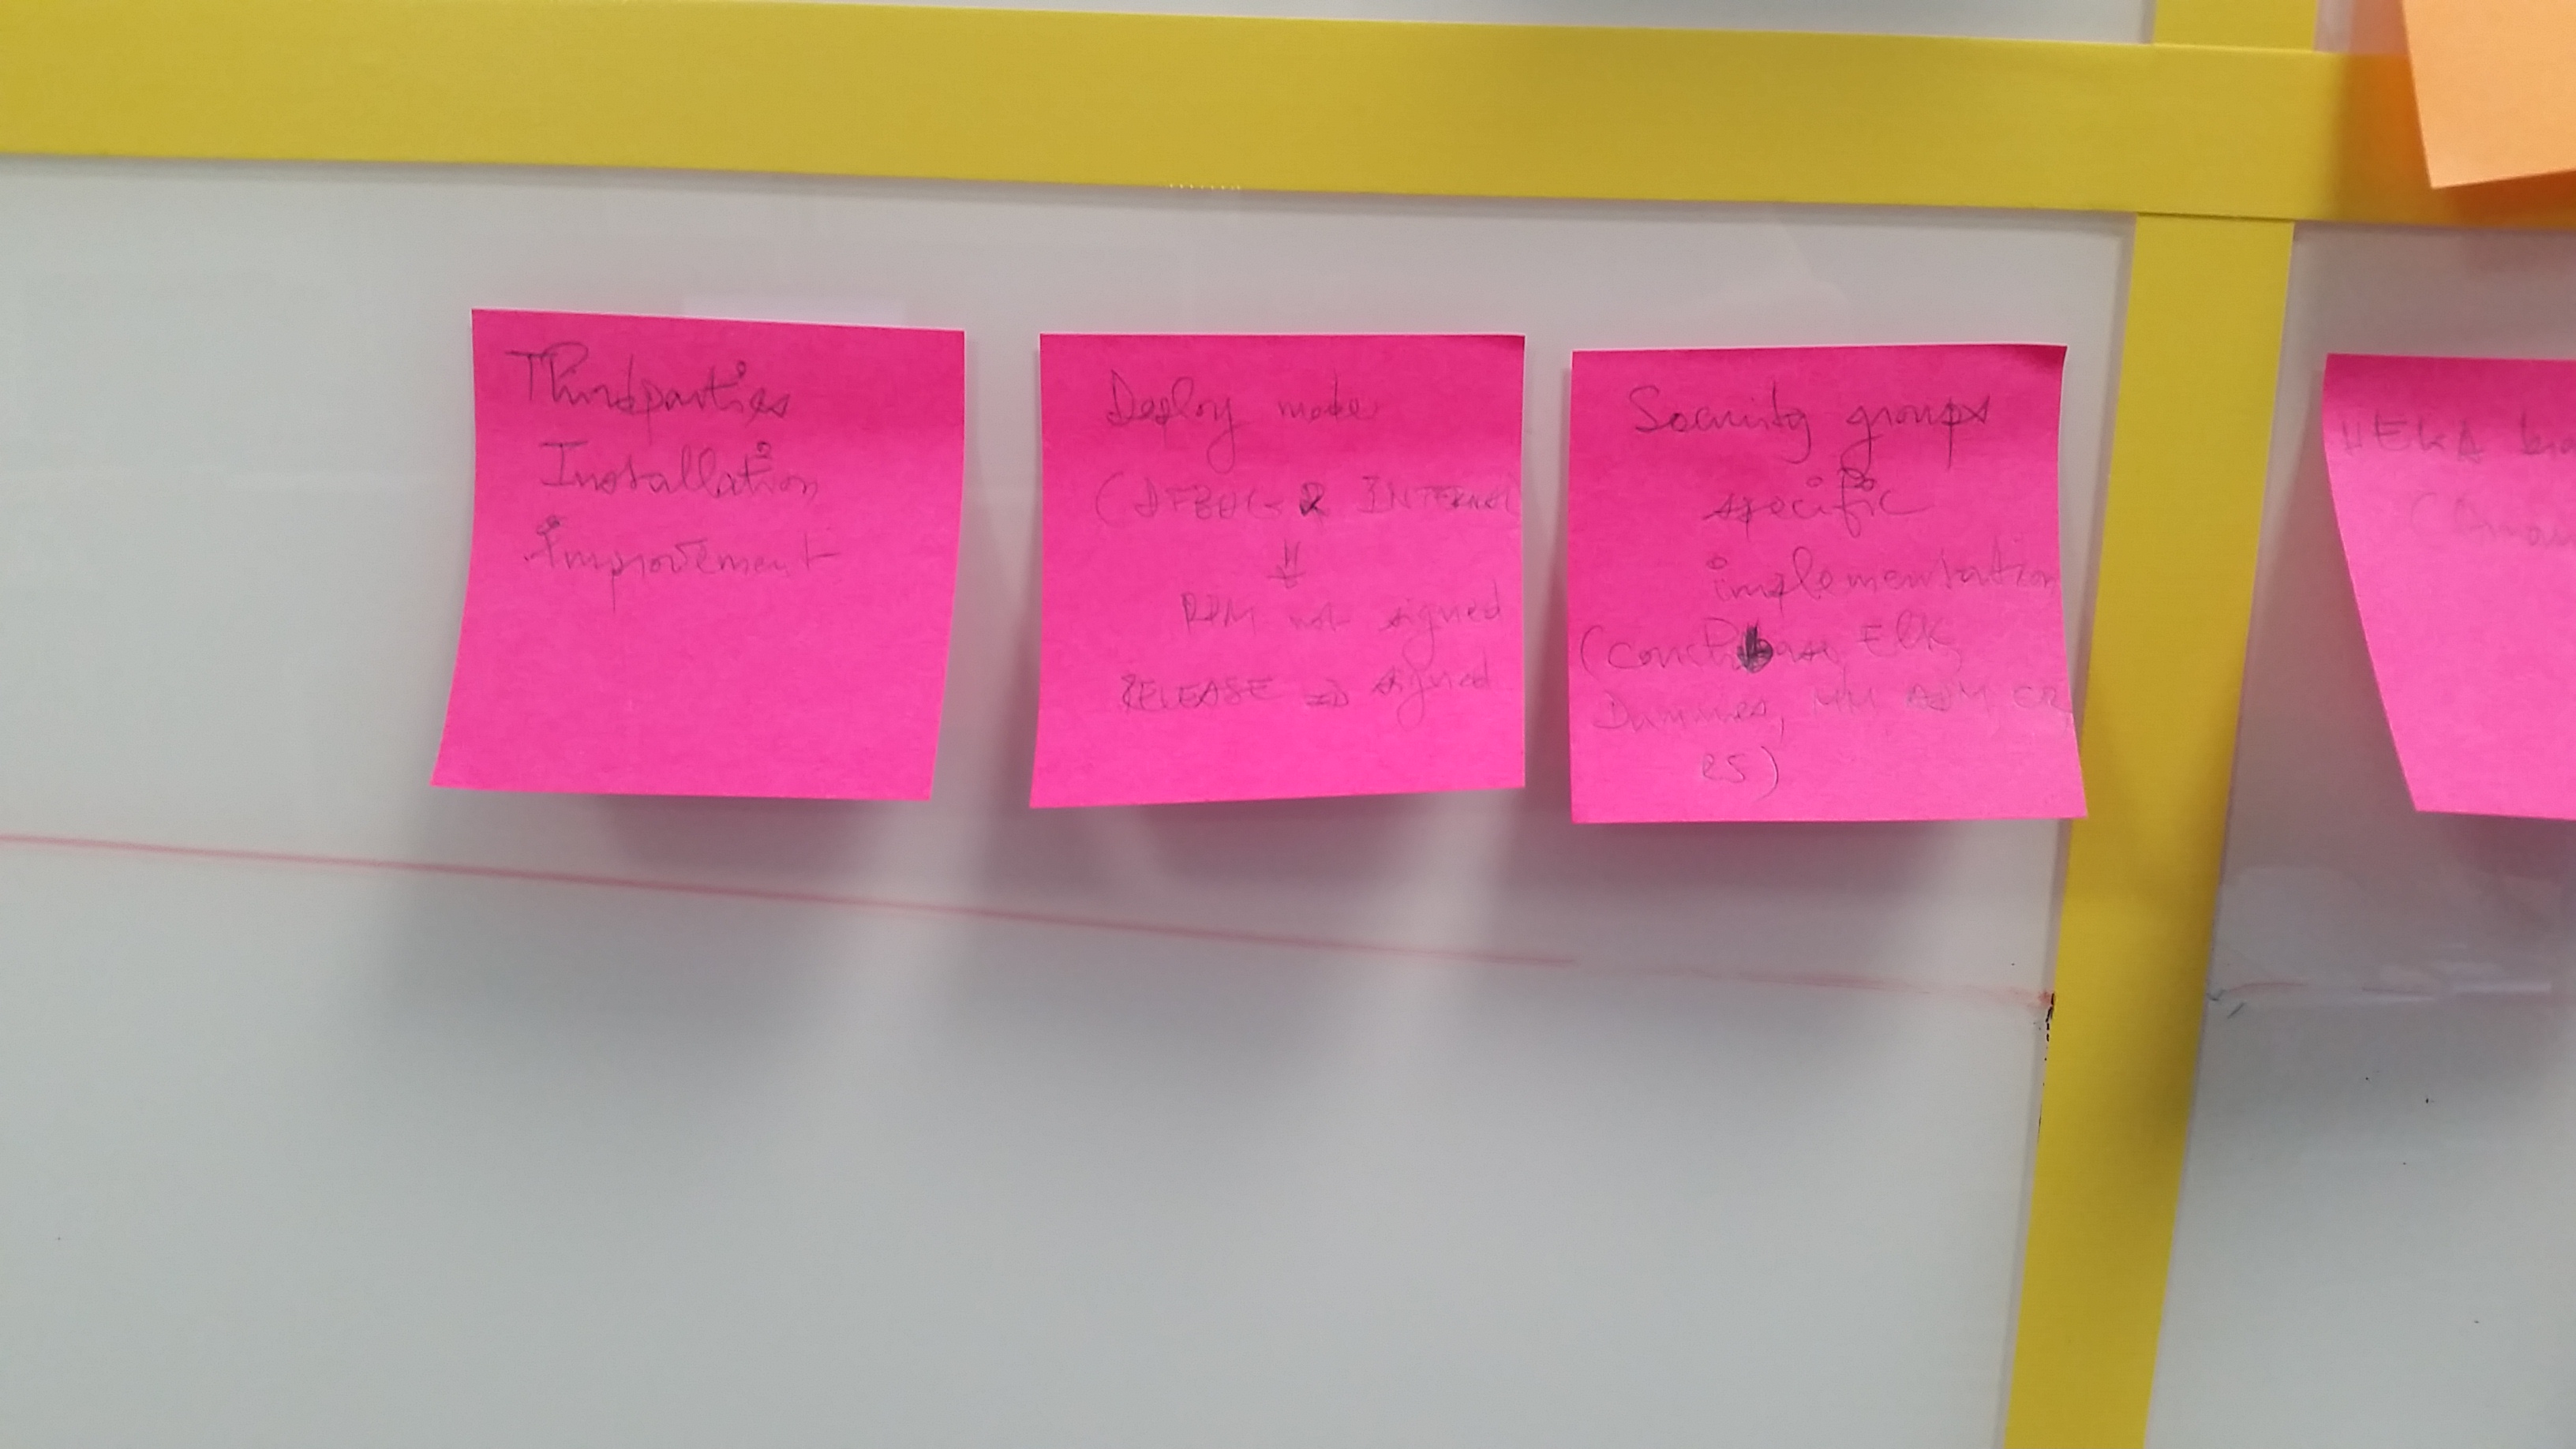 Thirdparties
Installation
improvement
Deploy mode
(DEBUG & INTERNAL
⇓
RPM not signed
RELEASE ⇒ signed
Security groups
specific
implementation
(couchbase, Elk,
Dummies,
es)